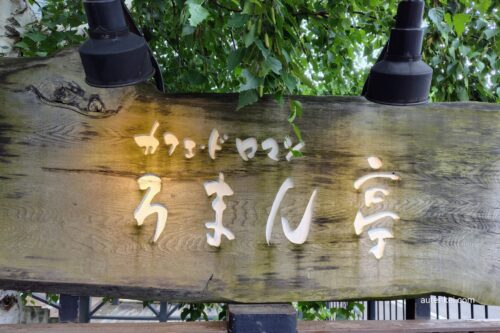 カフェ・ド ロマン
ろまん亭
autenkei.com